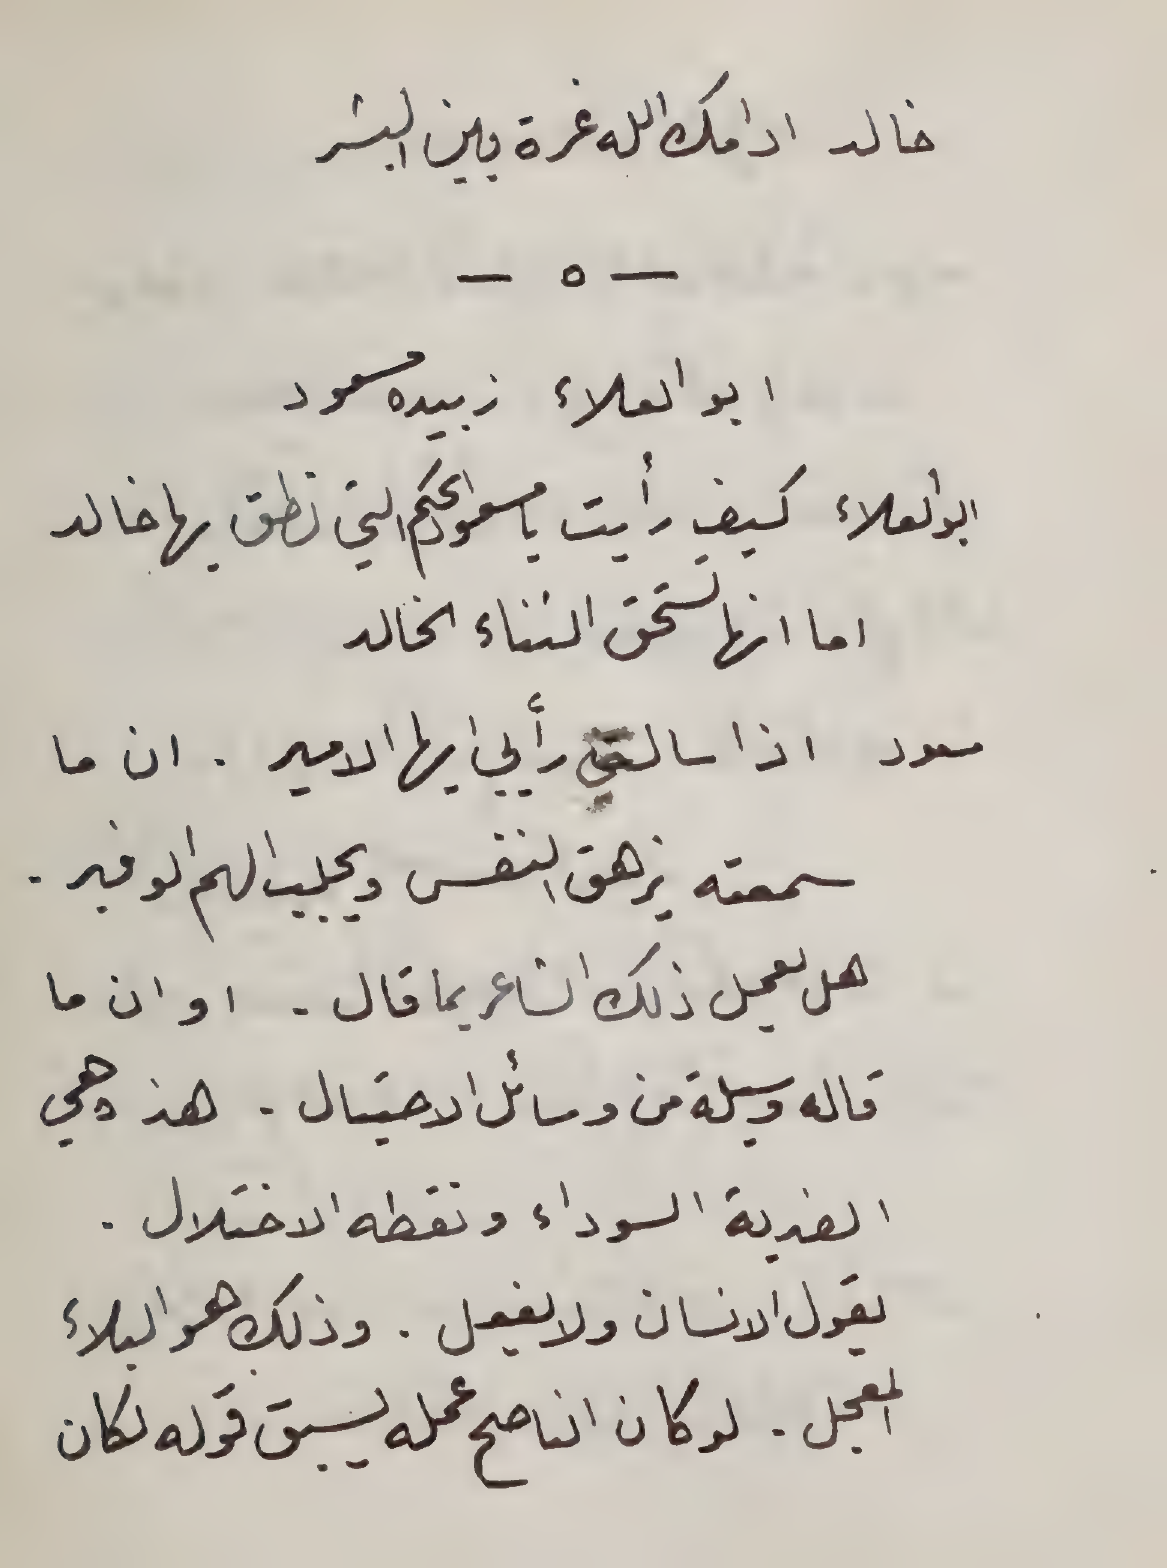 خالد ادامك الله غرة بين البشر
— ٥ —
ابو العلاء زبيده مسعود
ابو العلاء كيف رأيت يا مسعود الحكم التي نطق بها خالد
اما انها تستحق الثناء الخالد
مسعود اذا سالتني رأيي ايها الامير . ان ما
سمعته يزهق النفس ويجلب الهم الوفير .
هل يعمل ذلك الشاعر بما قال . او ان ما
قاله وسيلة من وسائل الاحتيال . هذه هي
الفدية السوداء ونقطه الاختلال .
يقول الانسان ولا يفعل . وذلك هو البلاء
المعجل . لو كان الناصح عمله يسبق قوله لكان